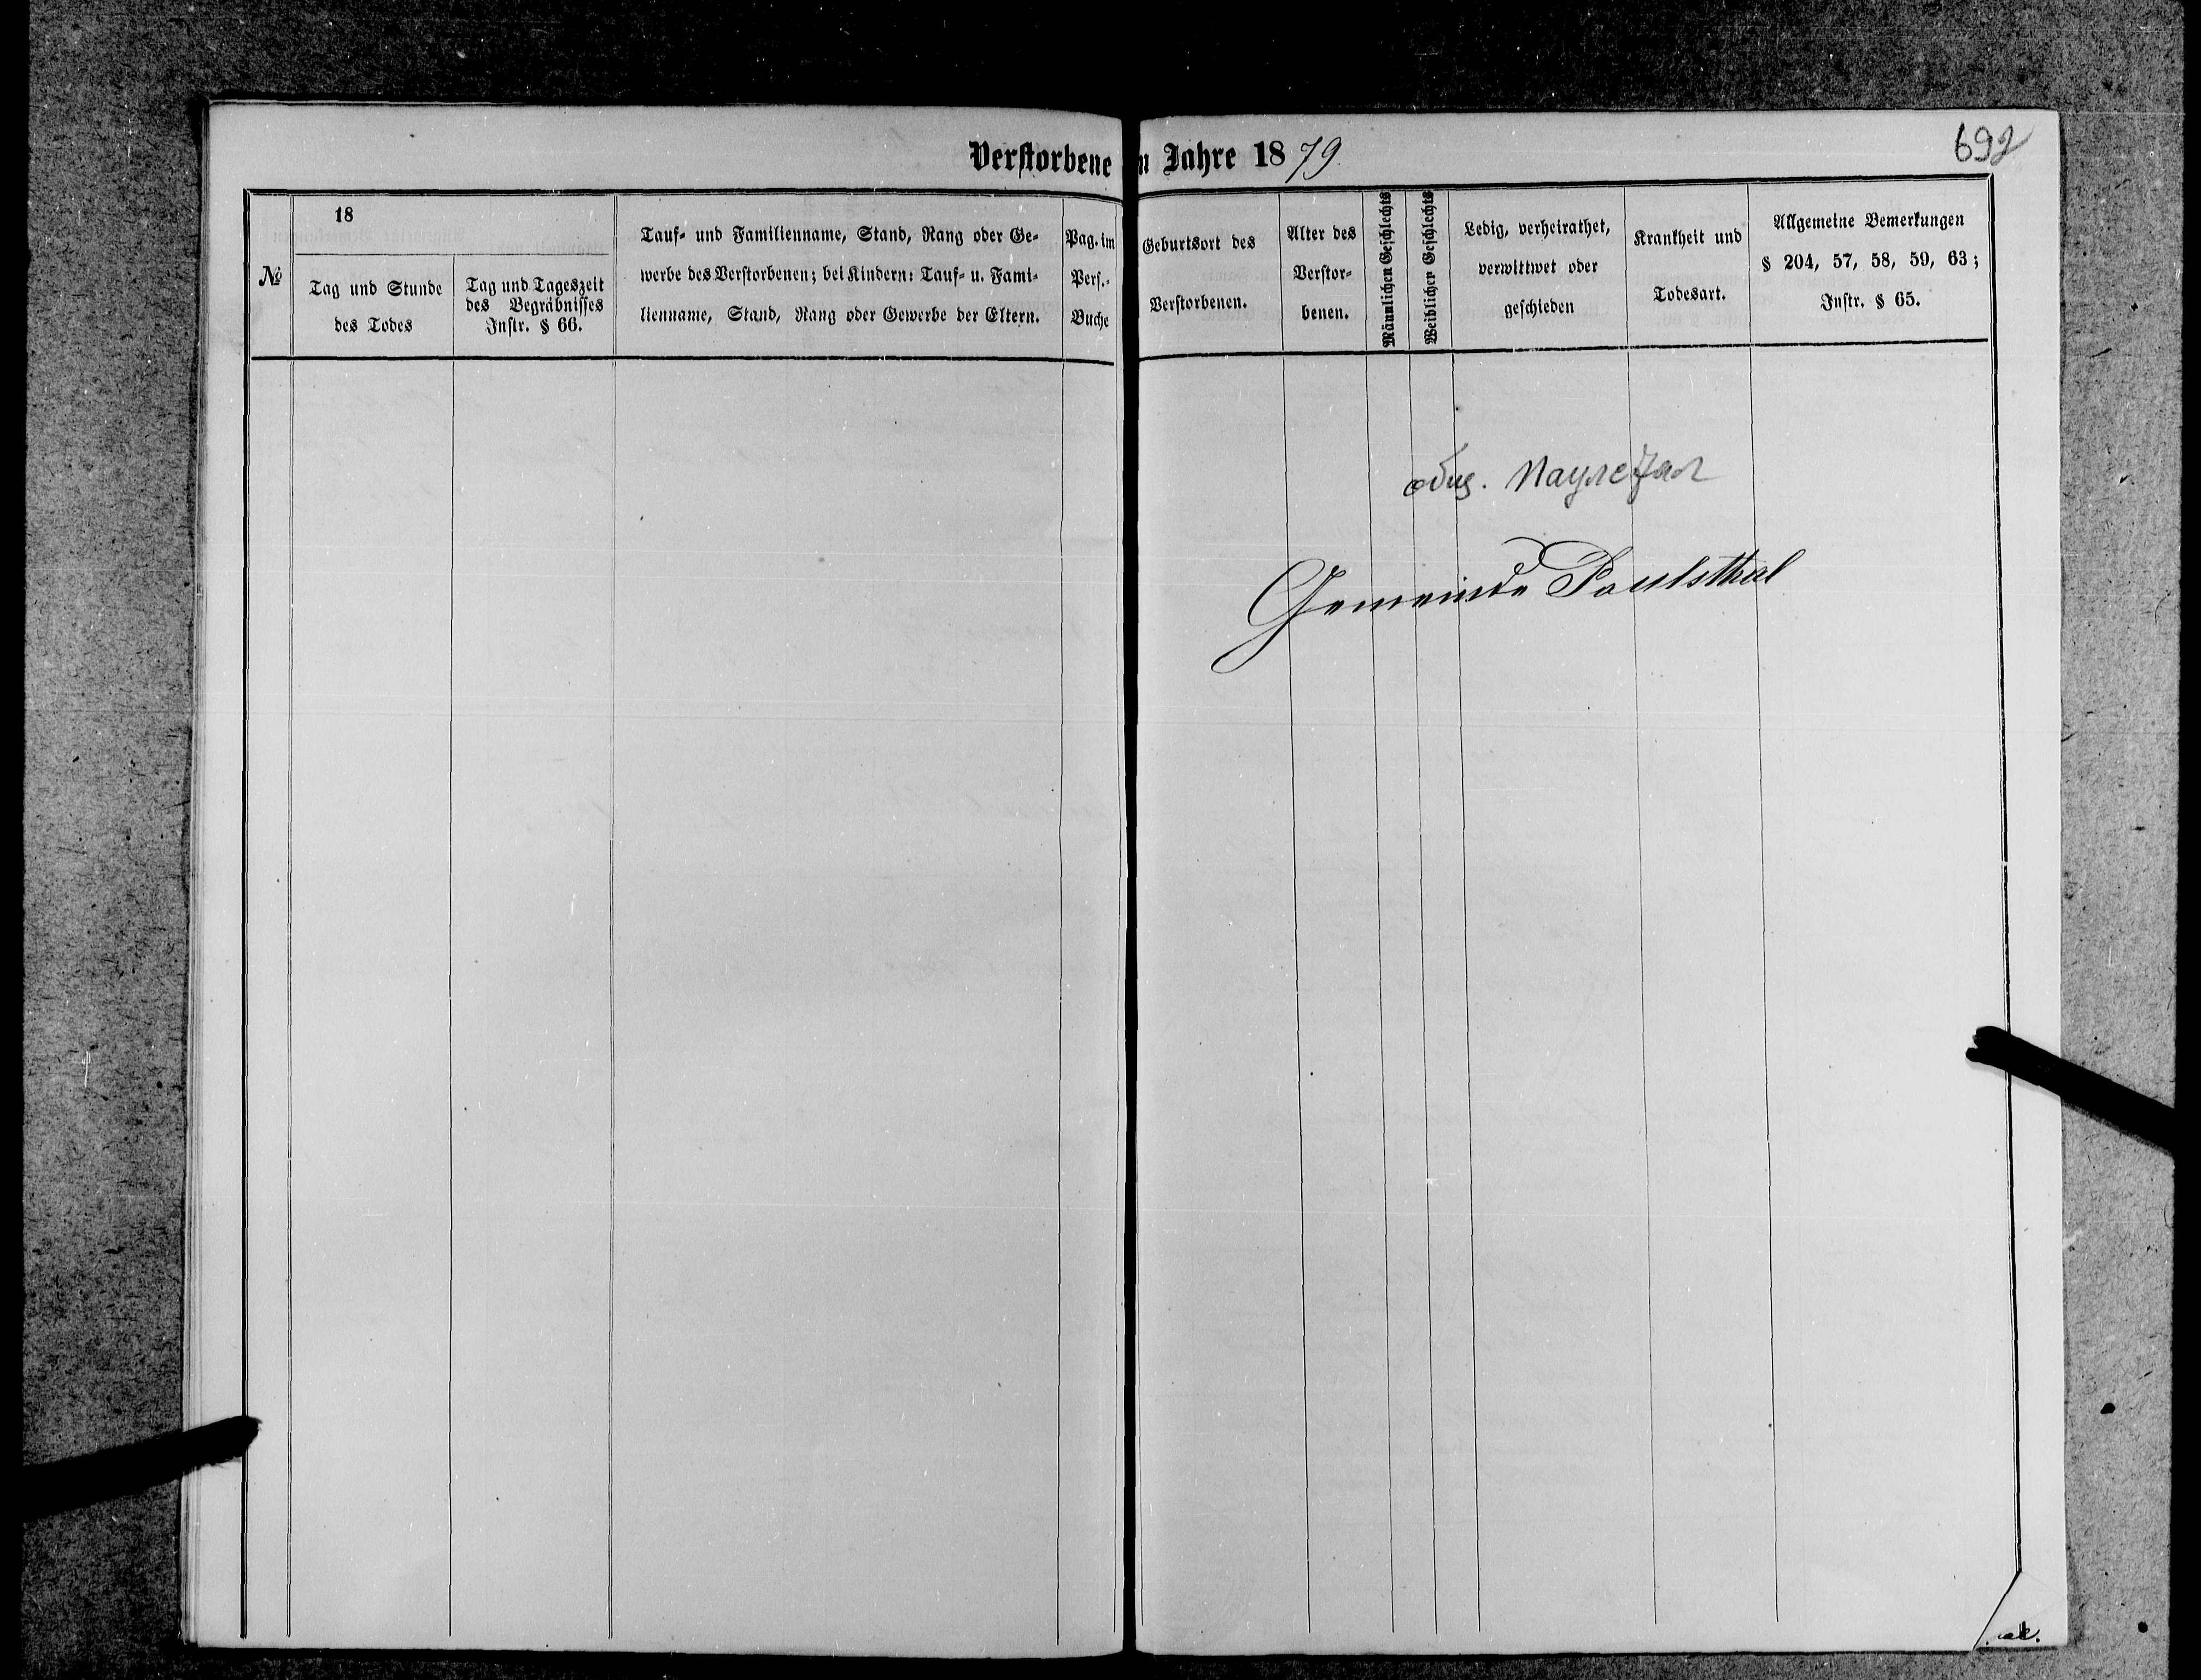 692
Verstorbene im Jahre 1879.
№
18
Tag und Stunde
des Todes
Tag und Tageszeit
des Begräbnisses
Instr. § 66.
Tauf- und Familienname, Stand, Rang oder Ge-
werbe des Verstorbenen; bei Kindern: Tauf- u. Fami-
lienname, Stand, Rang oder Gewerbe der Eltern.
Pag. im
Pers.-
Buche
Geburtsort des
Verstorbenen.
Alter des
Verstor-
benen.
Männlichen Geschlechts
Weiblichen Geschlechts
Ledig, verheirathet,
verwittwet oder
geschieden
Krankheit und
Todesart.
Allgemeine Bemerkungen
§ 204, 57, 58, 59, 63;
Instr. § 65.
общ.
Gemeinde Paulsthal